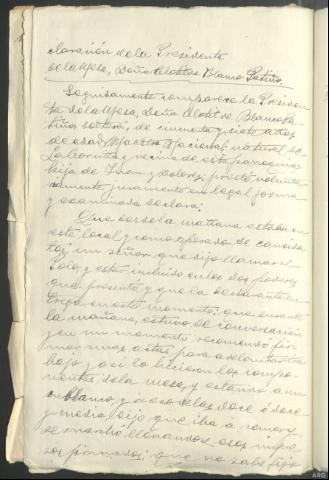 claración de la Presidente
de la Mesa, Doña Clotilde Blanco Patiño.
Seguidamente comparece la Presiden
te de la Mesa, Doña Clotilde Blanco Pa
tiño, soltera, de cincuenta y siete años
de edad, Maestra Nacional, natural de
La Coruña y vecina de esta parroquia
hija de Juan y Dolores; prestó volunta
riamente juramento en legal forma
y examinada declara:
Que desde la mañana estaba en
este local y como apoderado de candida
tos; un señor que dijo llamarse
Soto, y está incluido en los dos poderes
que presentó, y que la declarante en
trega en este momento; que durante
la mañana, estuvo de conversación
y en un momento recomendó fir
mar unas actas para adelantar tra
bajo y así lo hicieron los compo
nentes de la mesa, y estando aun
en blanco, y a eso de las doce o doce
y media, dijo que iba a comer y
se marchó llevándose esos impre
sos firmados; que no sabe fijo
ARG